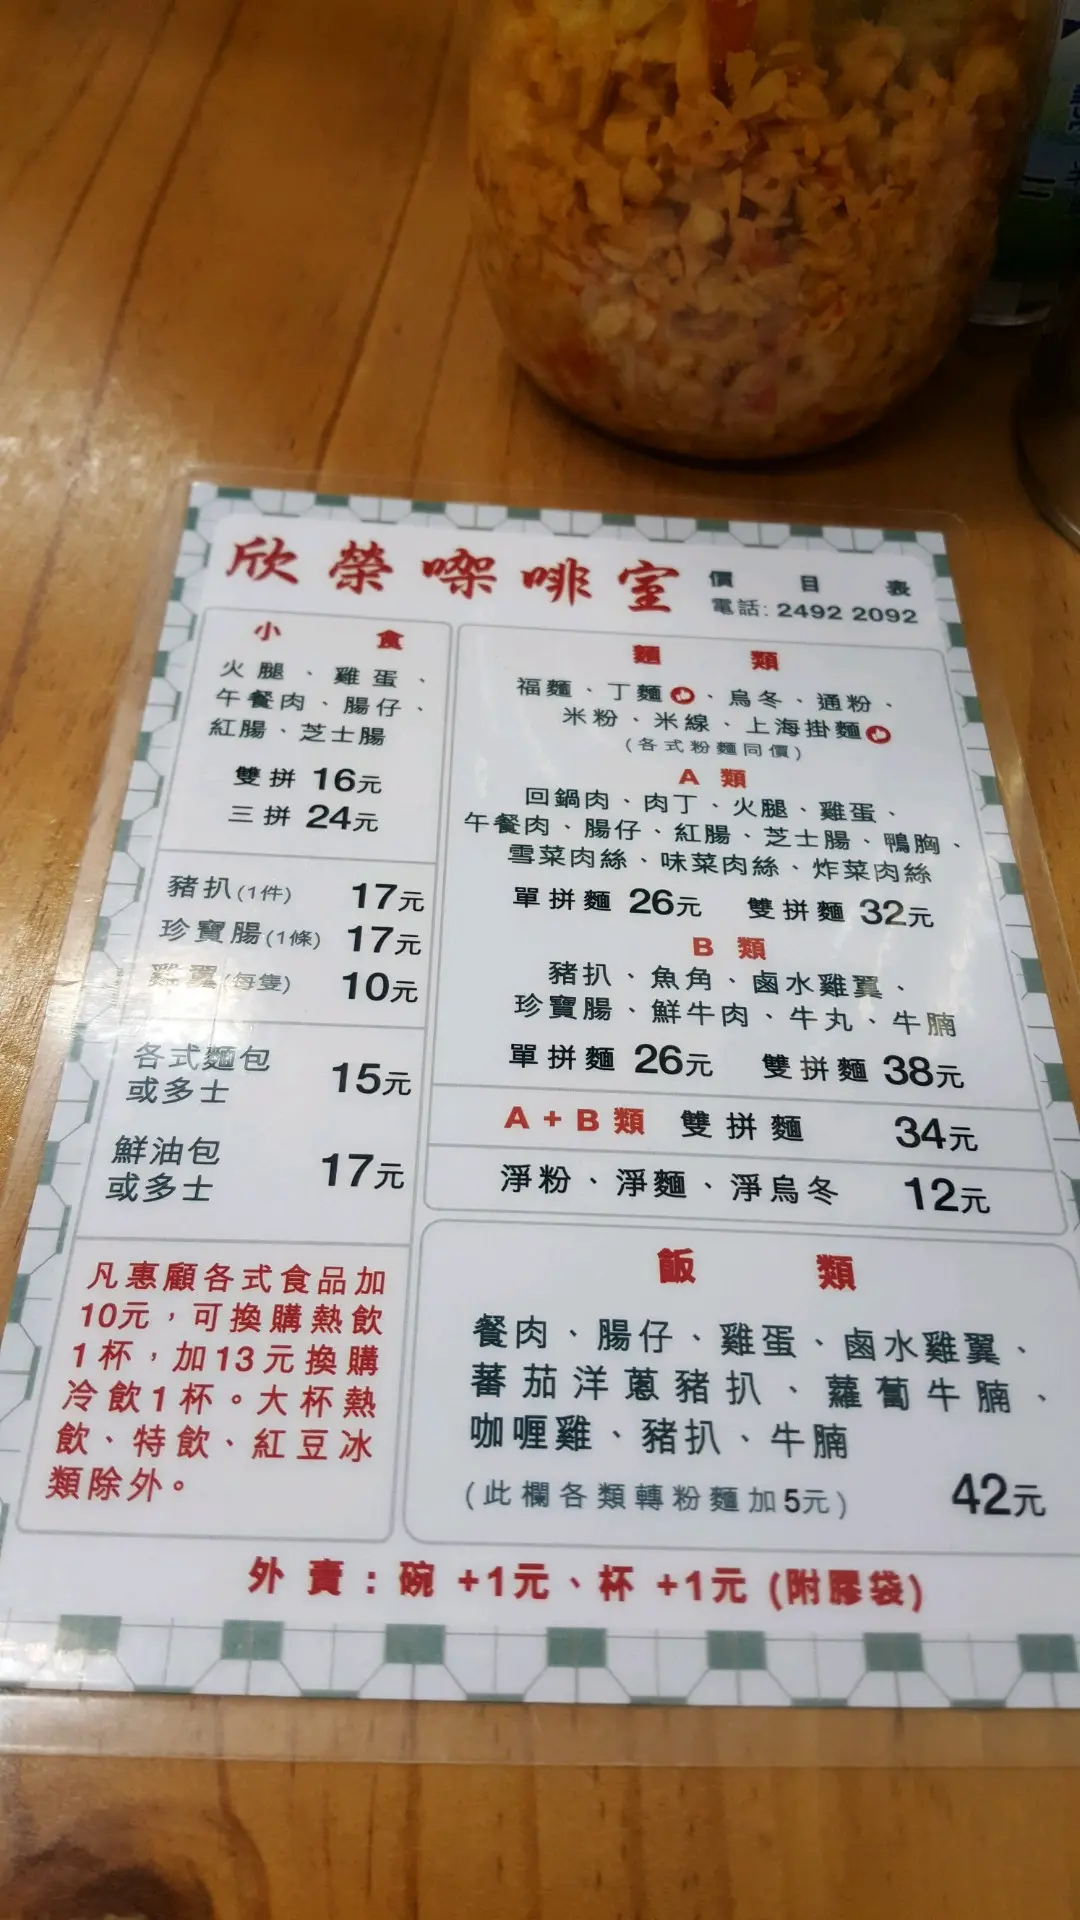 欣榮㗎啡室
價目表
電話: 2492 2092
小食
火腿、雞蛋、
午餐肉、腸仔、
紅腸、芝士腸
雙拼 16元
三拼 24元
豬扒(1件) 17元
珍寶腸(1條) 17元
雞翼(每隻) 10元
各式麵包
或多士 15元
鮮油包
或多士 17元
凡惠顧各式食品加
10元，可換購熱飲
1杯，加13元換購
冷飲1杯。大杯熱
飲、特飲、紅豆冰
類除外。
麵類
福麵、丁麵、烏冬、通粉、
米粉、米線、上海掛麵
(各式粉麵同價)
A 類
回鍋肉、肉丁、火腿、雞蛋、
午餐肉、腸仔、紅腸、芝士腸、鴨胸、
雪菜肉絲、味菜肉絲、炸菜肉絲
單拼麵 26元 雙拼麵 32元
B 類
豬扒、魚角、鹵水雞翼、
珍寶腸、鮮牛肉、牛丸、牛腩
單拼麵 26元 雙拼麵 38元
A+B類 雙拼麵 34元
淨粉、淨麵、淨烏冬 12元
飯類
餐肉、腸仔、雞蛋、鹵水雞翼、
蕃茄洋蔥豬扒、蘿蔔牛腩、
咖喱雞、豬扒、牛腩
(此欄各類轉粉麵加5元) 42元
外賣：碗 +1元、杯 +1元 (附膠袋)